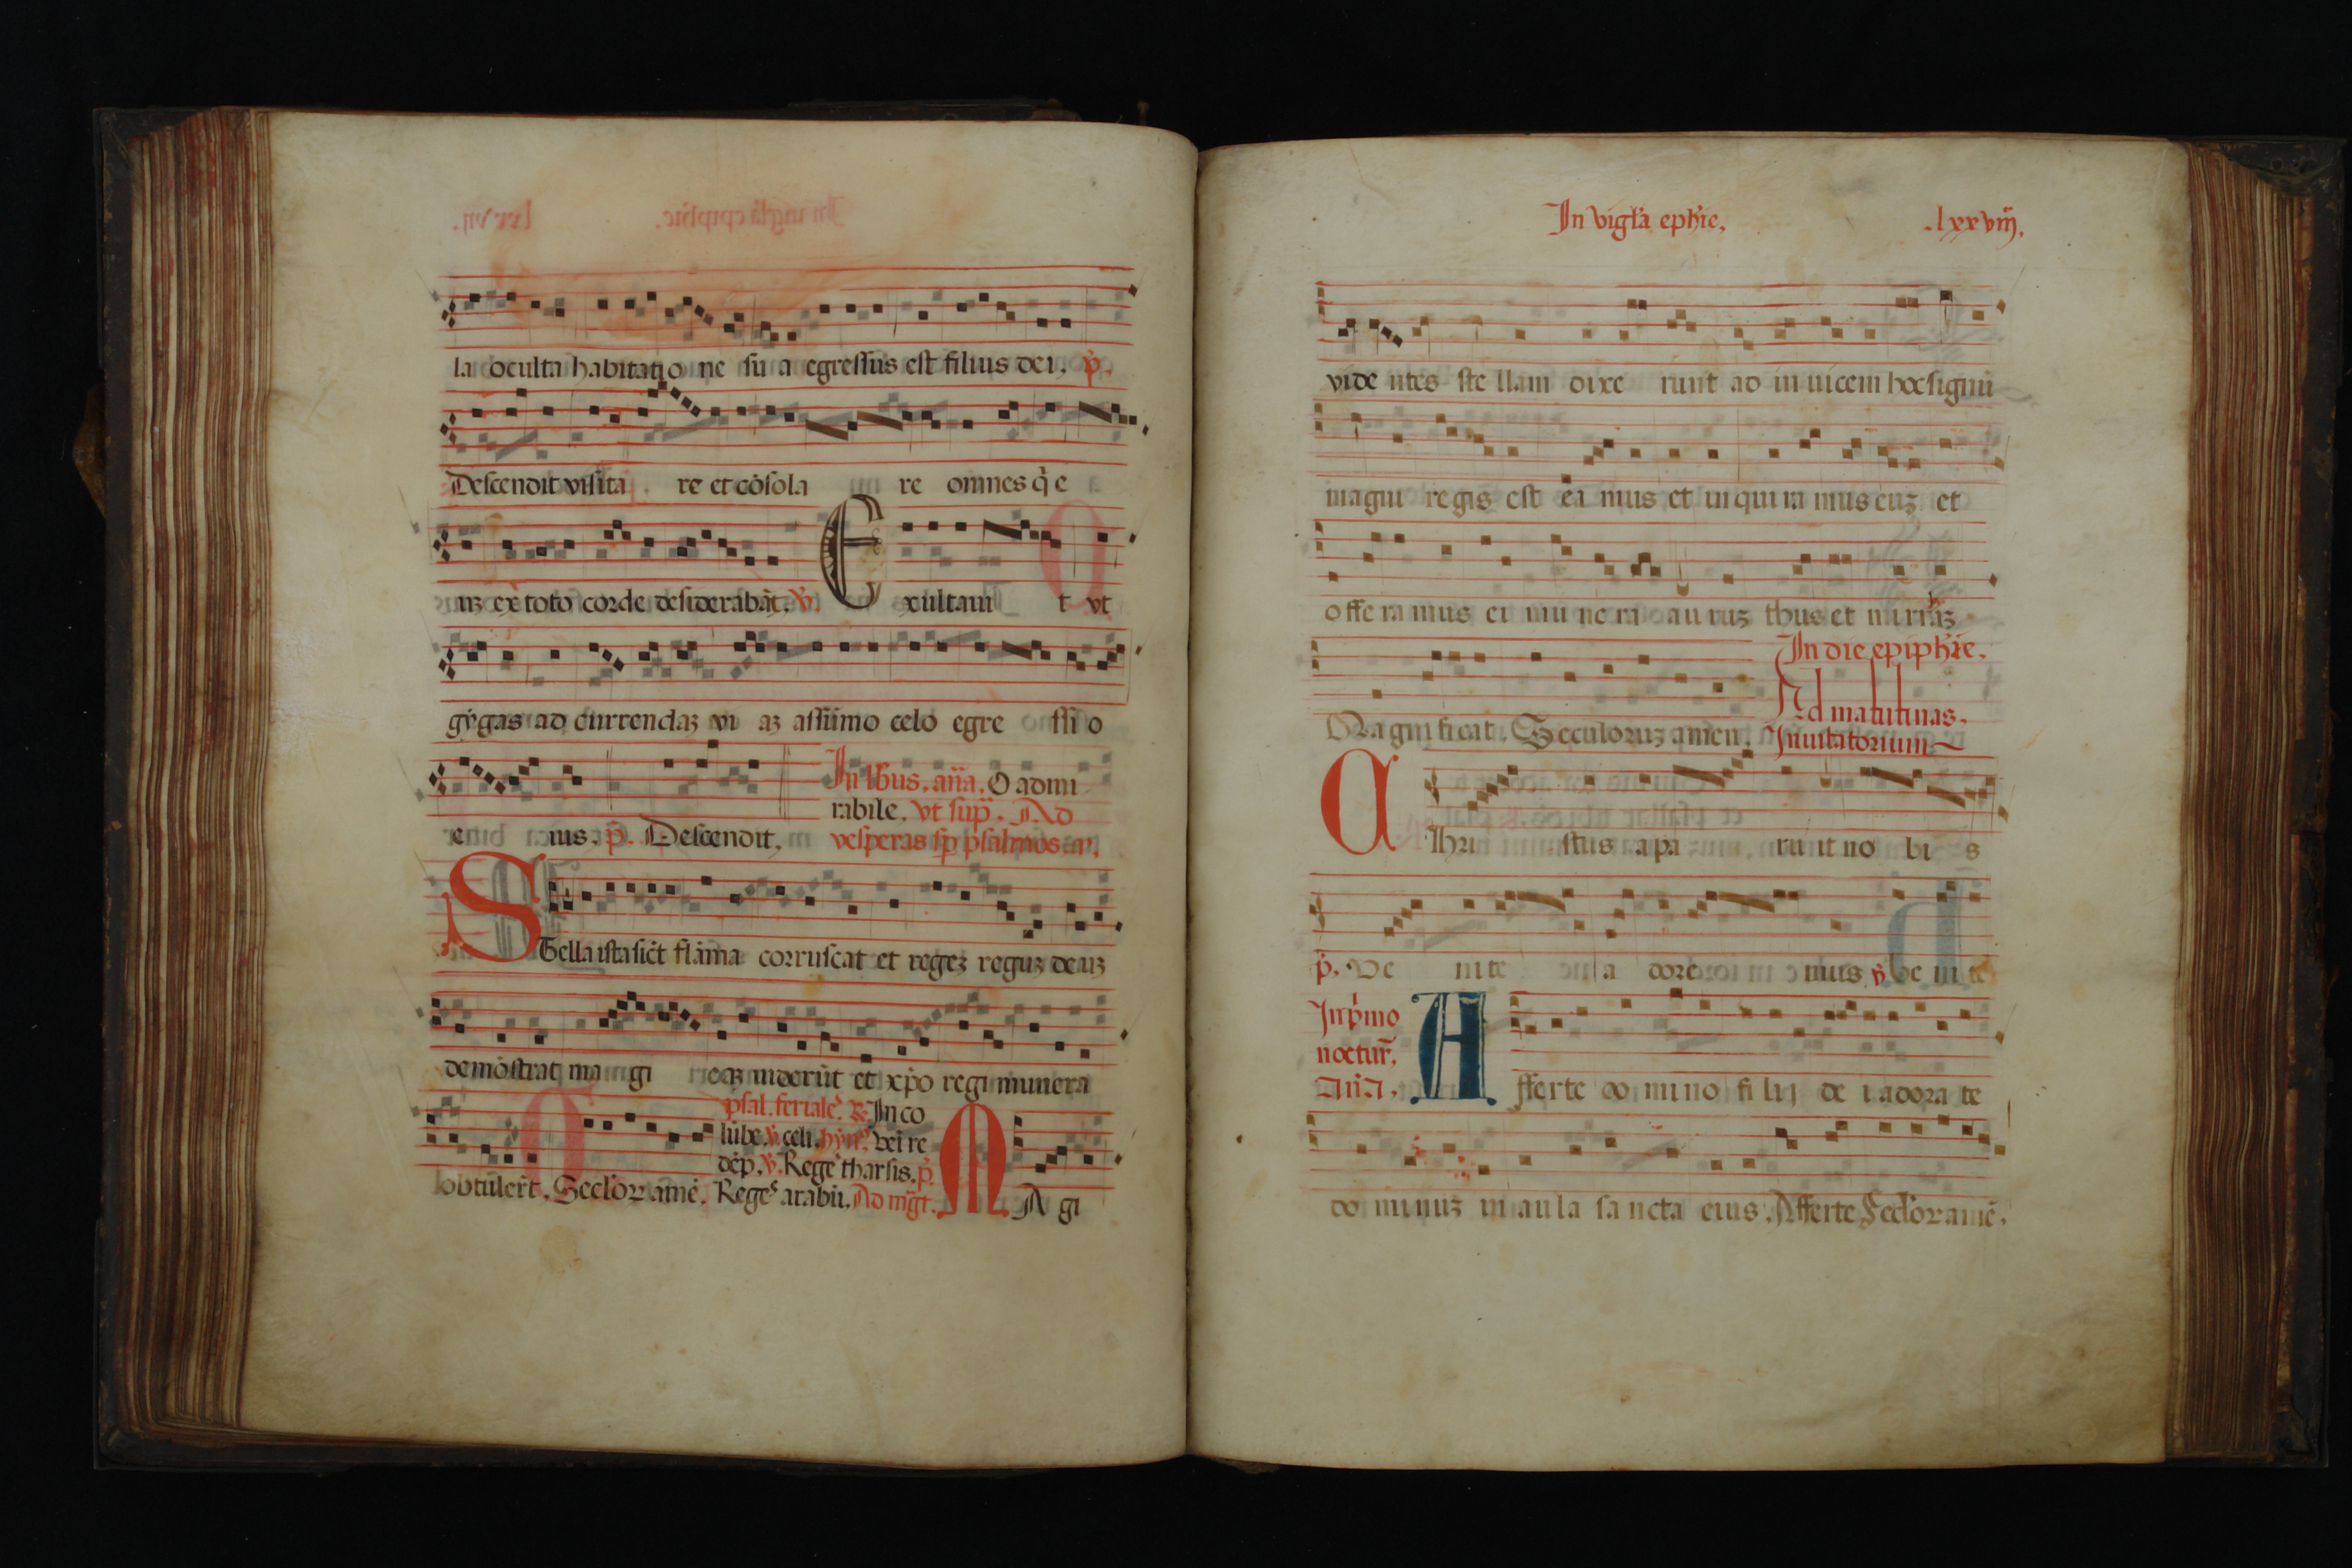 la oculta habitatio ne su a egressus est filius dei. p̃.
Descendit visita re et cõsola re omnes q̃ e
uʒ ex toto corde desiderabãt. ℣. Exultaui t vt
gygas ad currendaʒ vi aʒ assumo celo egre ssi o
e ius. p̃. Descendit.
In lõus. añã. O admi
rabile. vt sup̃. Ad
vesperas sp̃ psalmos
Stella ista sict flãma corruscat et regeʒ reguʒ deuʒ
demõstrat ma gi eaʒ uiderũt et xp̃o regi munera
obtulert̃. Seclorᷓ amẽ.
psal. feriale. ℟. In co
lũbe. ℣. celi. hyñ. vei re
dẽp. ℣. Rege tharsis. p̃.
Regeˢ arabũ. Ad mg̃t. MA gi
In vigl'a eph'ie. .lxxviij.
vide ntes ste llam dixe runt ad in uicem hoc signũ
magni regis est ea mus et inqui ra mus euʒ et
offe ra mus ei mu ne ra auruʒ thus et mirrhãʒ
Magni ficat. Seculoruʒ amen.
In die epiph'ie.
Ad matutinas.
Inuitatorium
Christus apa ruit no bi s
p̃. Ve nite a dore mus. p̃. Ve ni te
In p̃mo
noctur̃.
añã.
Afferte do mi no fi lij de i adora te
do minuʒ in au la sa ncta eius. Afferte Seclorᷓ amẽ.